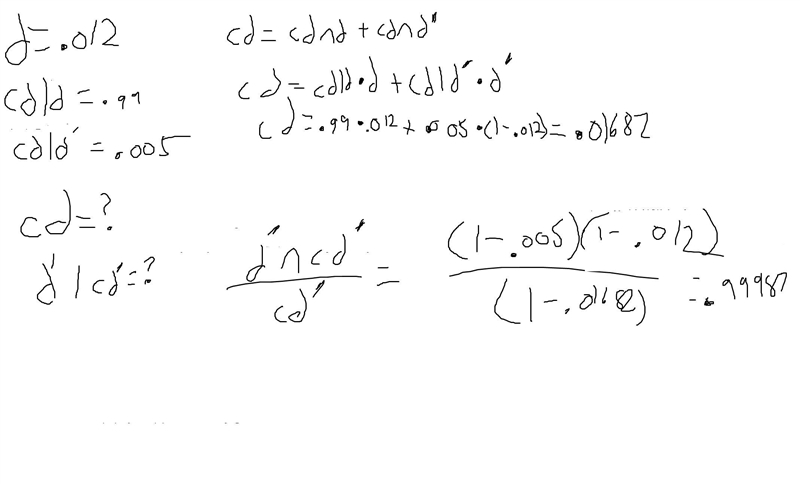 d = .012
cd|d = .99
cd|d' = .005
cd = ?
d' | cd' = ?
cd = cd∩d + cd∩d'
cd = cd|d • d + cd|d' • d'
cd = .99 • .012 + .005 • (1 - .012) = .01687
d' ∩ cd' / cd' = (1 - .005)(1 - .012) / (1 - .0168) = .99987